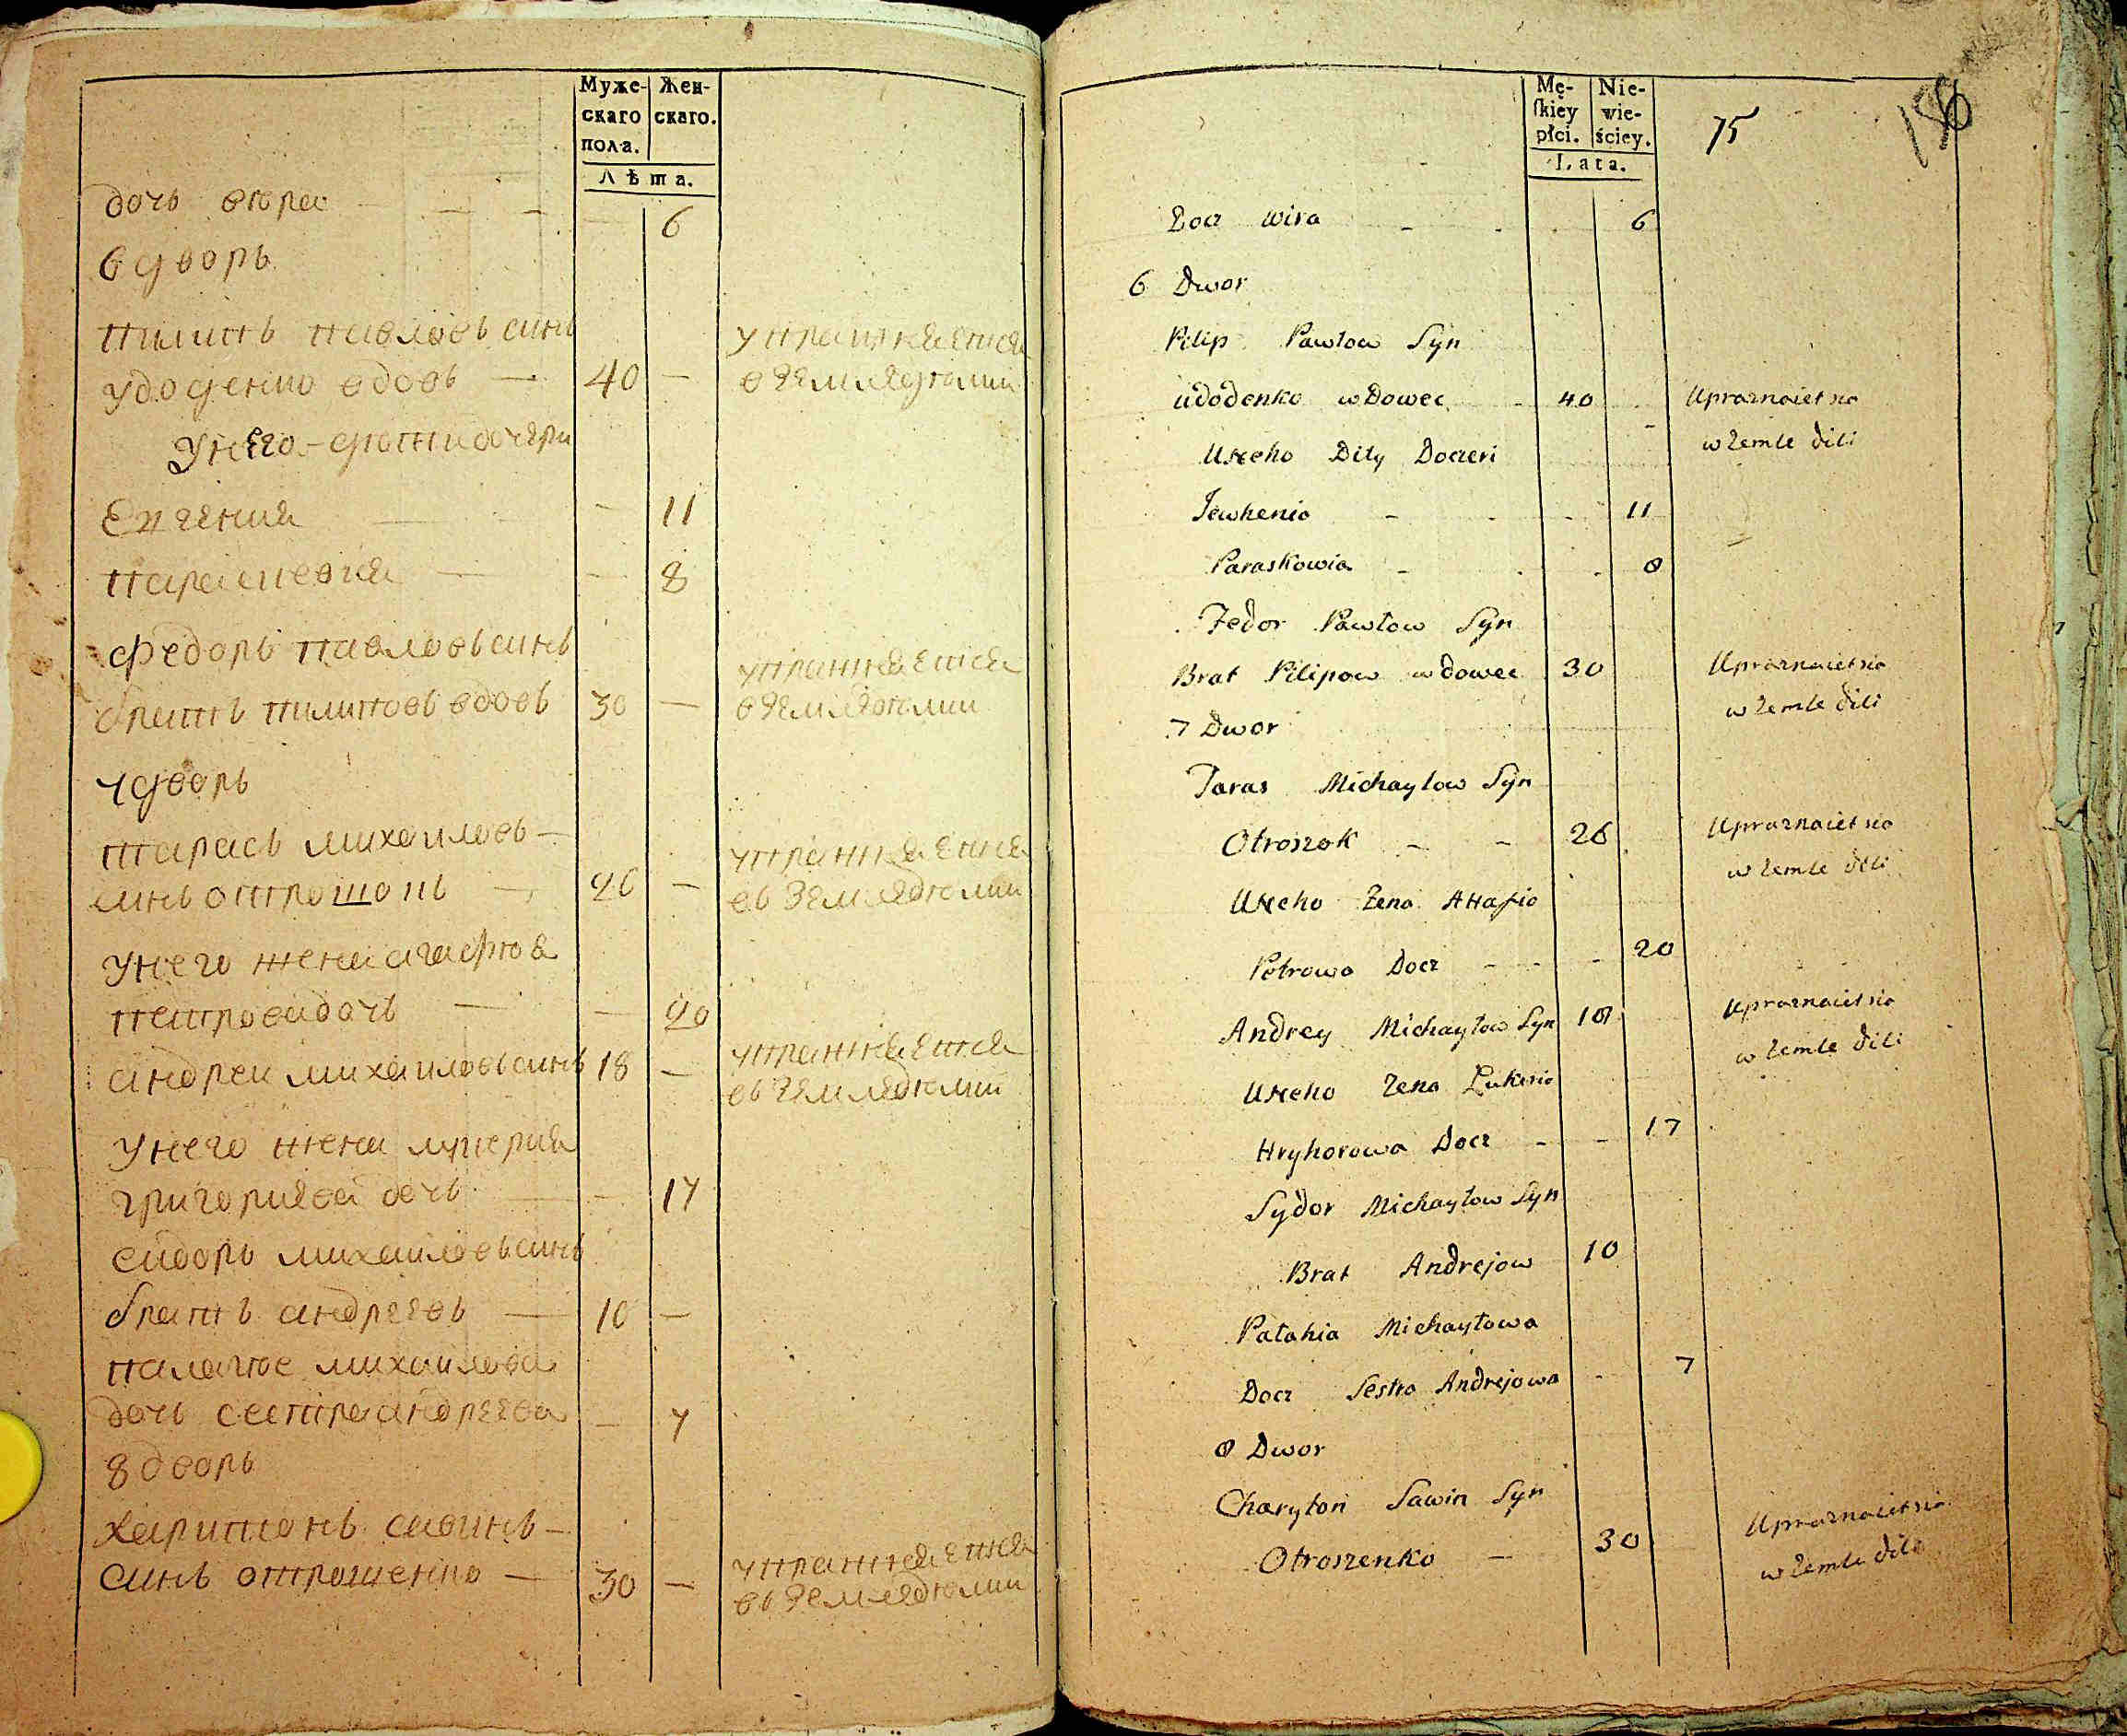 Муже-
скаго
пола.
Жен-
скаго.
Лѣта.
дочь вѣра — — — 6
6 дворъ
пилипъ павловъ синъ
удоденко вдовъ — 40 —
упражняется
в земледѣлии
У него дѣти дочери
Евгения — 11
параскевия — — 8
федоръ павловъ синъ
братъ пилиповъ вдовъ 30 —
упражняется
в земледѣлии
7 дворъ
тарасъ михаиловъ —
синъ отрошокъ — 26 —
упражняется
въ земледѣлии
У него жена агафия
петрова дочь — — 20
андреи михаиловъ синъ 18 —
упражняется
въ земледѣлии
У него жена лукерия
григориева дочь — 17
сидоръ михаиловъ синъ
братъ андреевъ — 10 —
палагѣя михаилова
дочь сестра андреева — 7
8 дворъ
харитонъ савинъ —
синъ отрошенко — 30 —
упражняется
въ земледѣлии
Mę-
skiey
płci.
Nie-
wie-
ściey.
Lata.
75
186
Docz Wira - - . 6
6 Dwor
Pilip Pawłow Syn
Udodenko wDowec - 40 .
Upraznaietsia
w Zemle dili
Uneho Dity Doczeri
Jewhenia - - - 11
Paraskowia - . . 8
Fedor Pawłow Syn
Brat Pilipow wdowec 30
Upraznaietsia
w Zemle dili
7 Dwor
Taras Michayłow Syn
Otroszok - - 26
Upraznaietsia
w Zemle dili
Uneho Zena Ahafia
Petrowa Docz - - - 20
Andrey Michayłow Syn 18
Upraznaietsia
w Zemle dili
Uneho Zena Łukeria
Hryhorowa Docz - - 17
Sydor Michayłow Syn
Brat Andrejow 10
Pałahia Michayłowa
Docz Sestra Andrejowa - 7
8 Dwor
Charyton Sawin Syn
Otroszenko - 30
Upraznaietsia
w Zemle dili